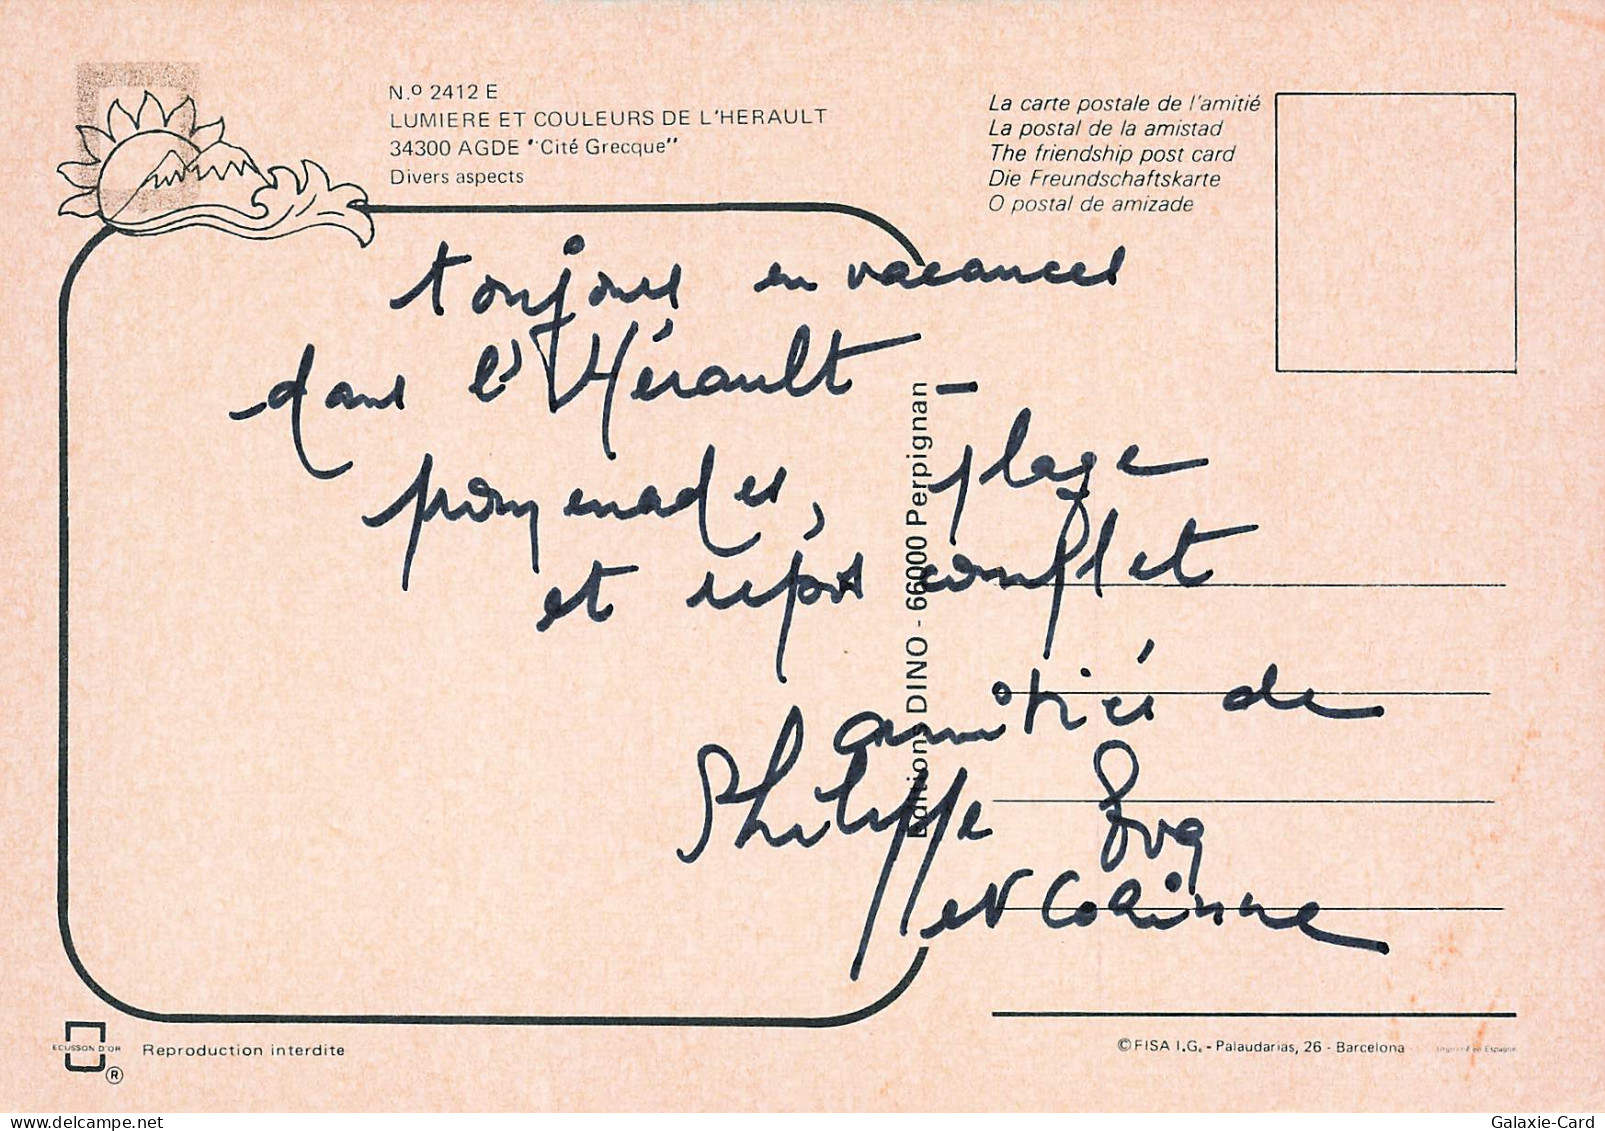 N.º 2412 E
LUMIERE ET COULEURS DE L'HERAULT
34300 AGDE "Cité Grecque"
Divers aspects
La carte postale de l'amitié
La postal de la amistad
The friendship post card
Die Freundschaftskarte
O postal de amizade
toujours en vacances
dans l'Hérault -
promenades, plage
et repos complet
amitiés de
Philippe
et Corinne
Editions DINO - 66000 Perpignan
ECUSSON D'OR
®
Reproduction interdite
© FISA I.G. - Palaudarias, 26 - Barcelona
Imprimé en Espagne
Galaxie-Card